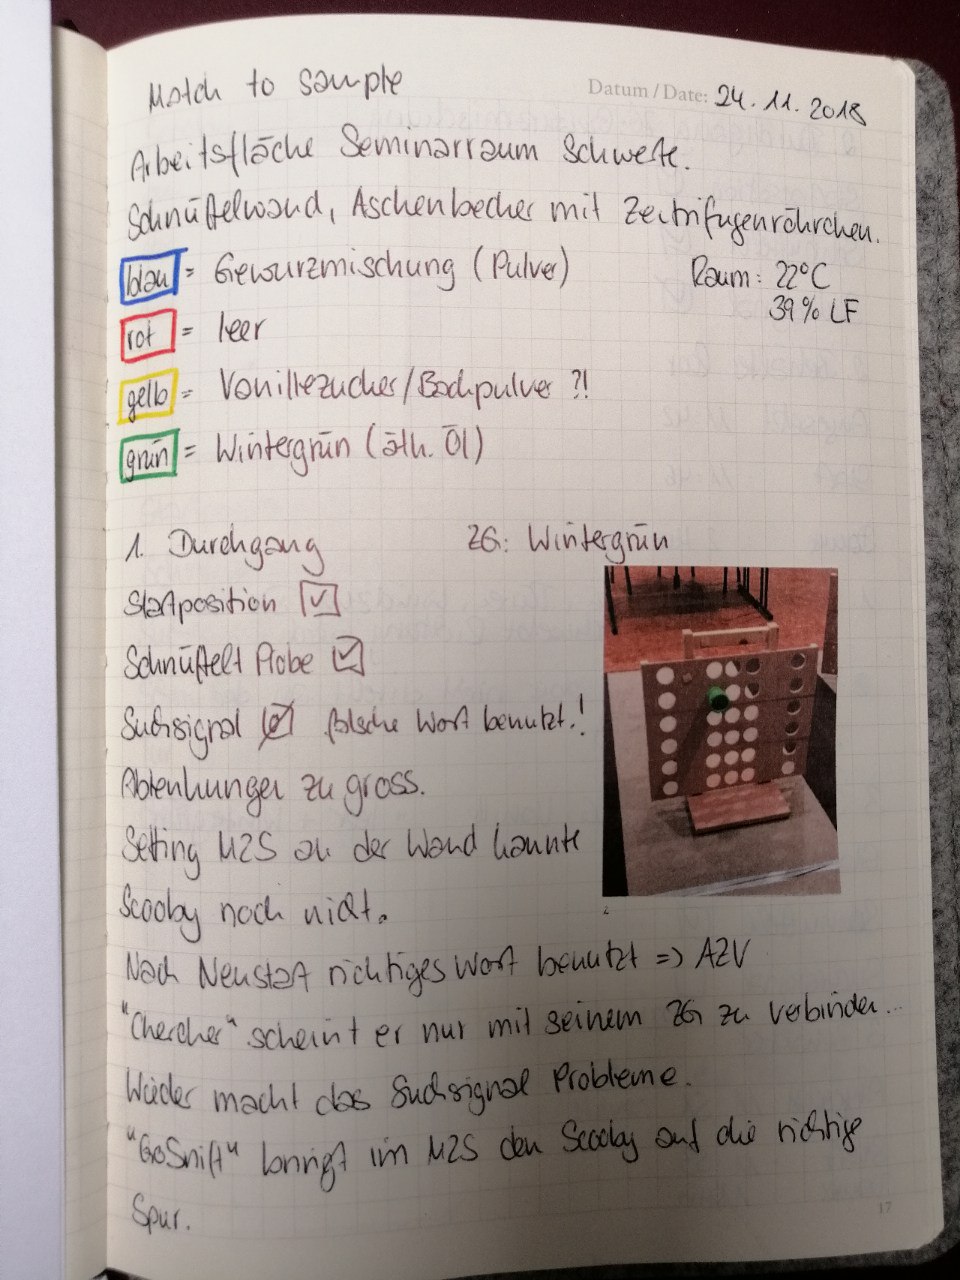 Match to sample
Datum / Date: 24.11.2018
Arbeitsfläche Seminarraum Schwerte.
Schnüffelwand, Aschenbecher mit Zentrifugenröhrchen.
blau = Gewürzmischung (Pulver)
Raum: 22°C
39% LF
rot = leer
gelb = Vanillezucker/Backpulver ?!
grün = Wintergrün (äth. Öl)
1. Durchgang ZG: Wintergrün
Startposition ☑
Schnüffelt Probe ☑
Suchsignal falsche Wort benutzt!
Ablenkungen zu gross.
Setting M2S an der Wand kannte
Scooby noch nicht.
Nach Neustart richtiges Wort benutzt => AZV
"Chercher" scheint er nur mit seinem ZG zu verbinden...
Wieder macht das Suchsignal Probleme.
"GoSniff" bringt im M2S den Scooby auf die richtige
Spur.
17